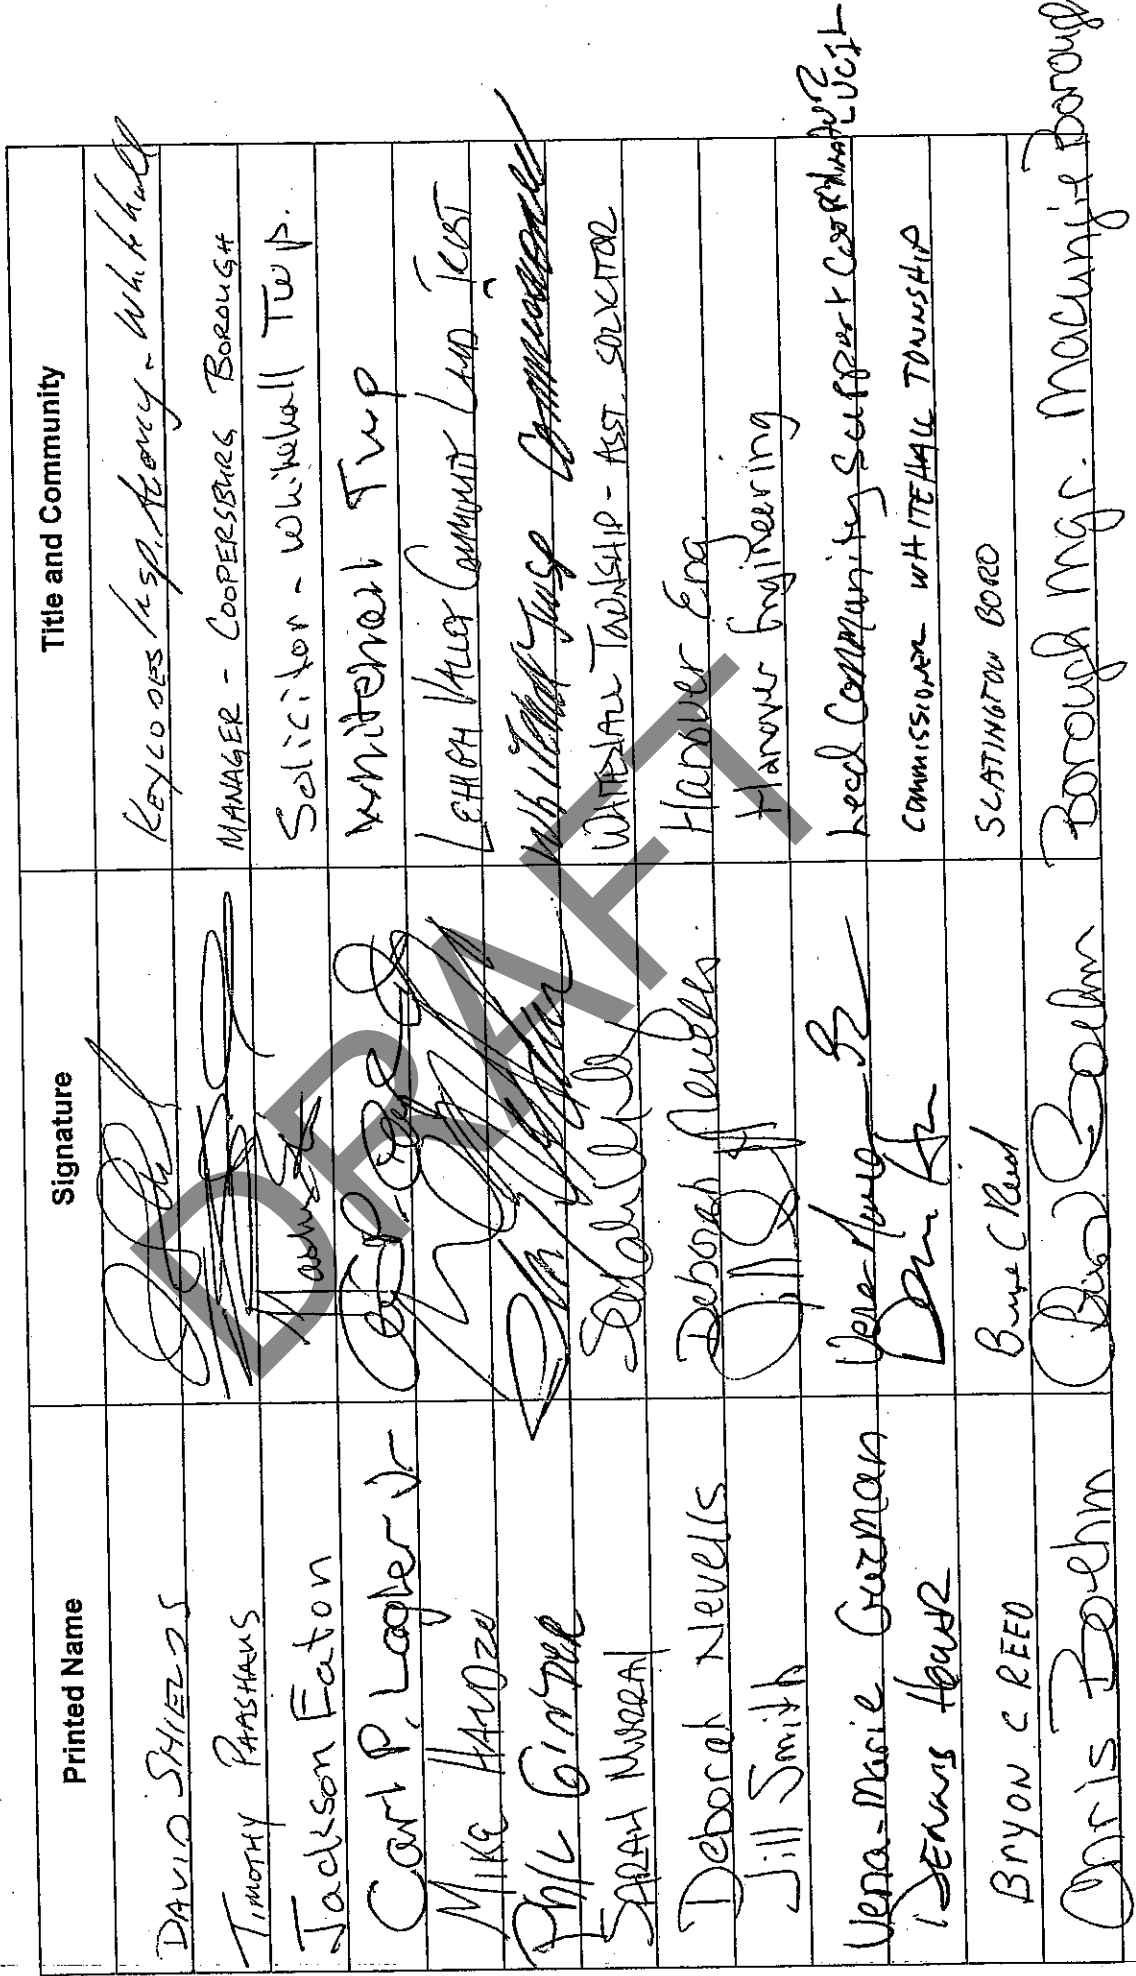 Printed Name Signature Title and Community
DAVID SHIELDS KEYCODES Insp. Agency - Whitehall
TIMOTHY PAASHAUS MANAGER - COOPERSBURG BOROUGH
Jackson Eaton Solicitor - Whitehall Twp.
Carl P. Logler Jr Whitehall Twp
MIKE HANDZO LEHIGH VALLEY COMMUNITY LAND TRUST
Phil GINDER Whitehall Twsp Commissioner
SARAH MURRAY Sarah WHITEHALL TOWNSHIP - ASST. SOLICITOR
Deborah Nevells Deborah Nevells Hanover Eng
Jill Smith Jill Hanover Engineering
Vena-Marie Guzman Vena-Marie Lead Community Support Coordinator LVCIL
DENNIS HOWER COMMISSIONER WHITEHALL TOWNSHIP
BRYON C REED Bryon C Reed SLATINGTON BORO
Chris Boehm Chris Boehm Borough Mgr. Macungie Borough
DRAFT